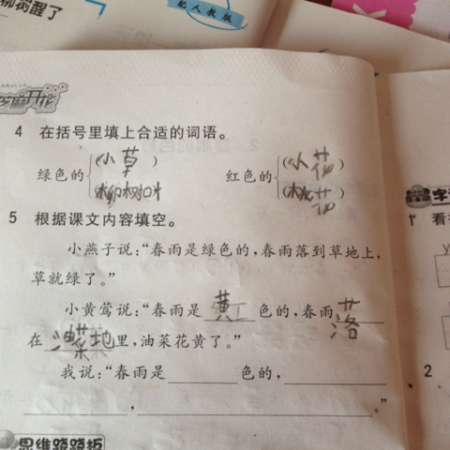 柳树醒了
配人教版
4 在括号里填上合适的词语。
绿色的 (小草) 红色的 (小花)
(柳树叶) (桃花)
5 根据课文内容填空。
小燕子说:“春雨是绿色的,春雨落到草地上,
草就绿了。”
小黄莺说:“春雨是 黄 色的,春雨 落
在 油菜地 里,油菜花黄了。”
我说:“春雨是______色的,______
______,______。”
思维跷跷板
字
1 看
2